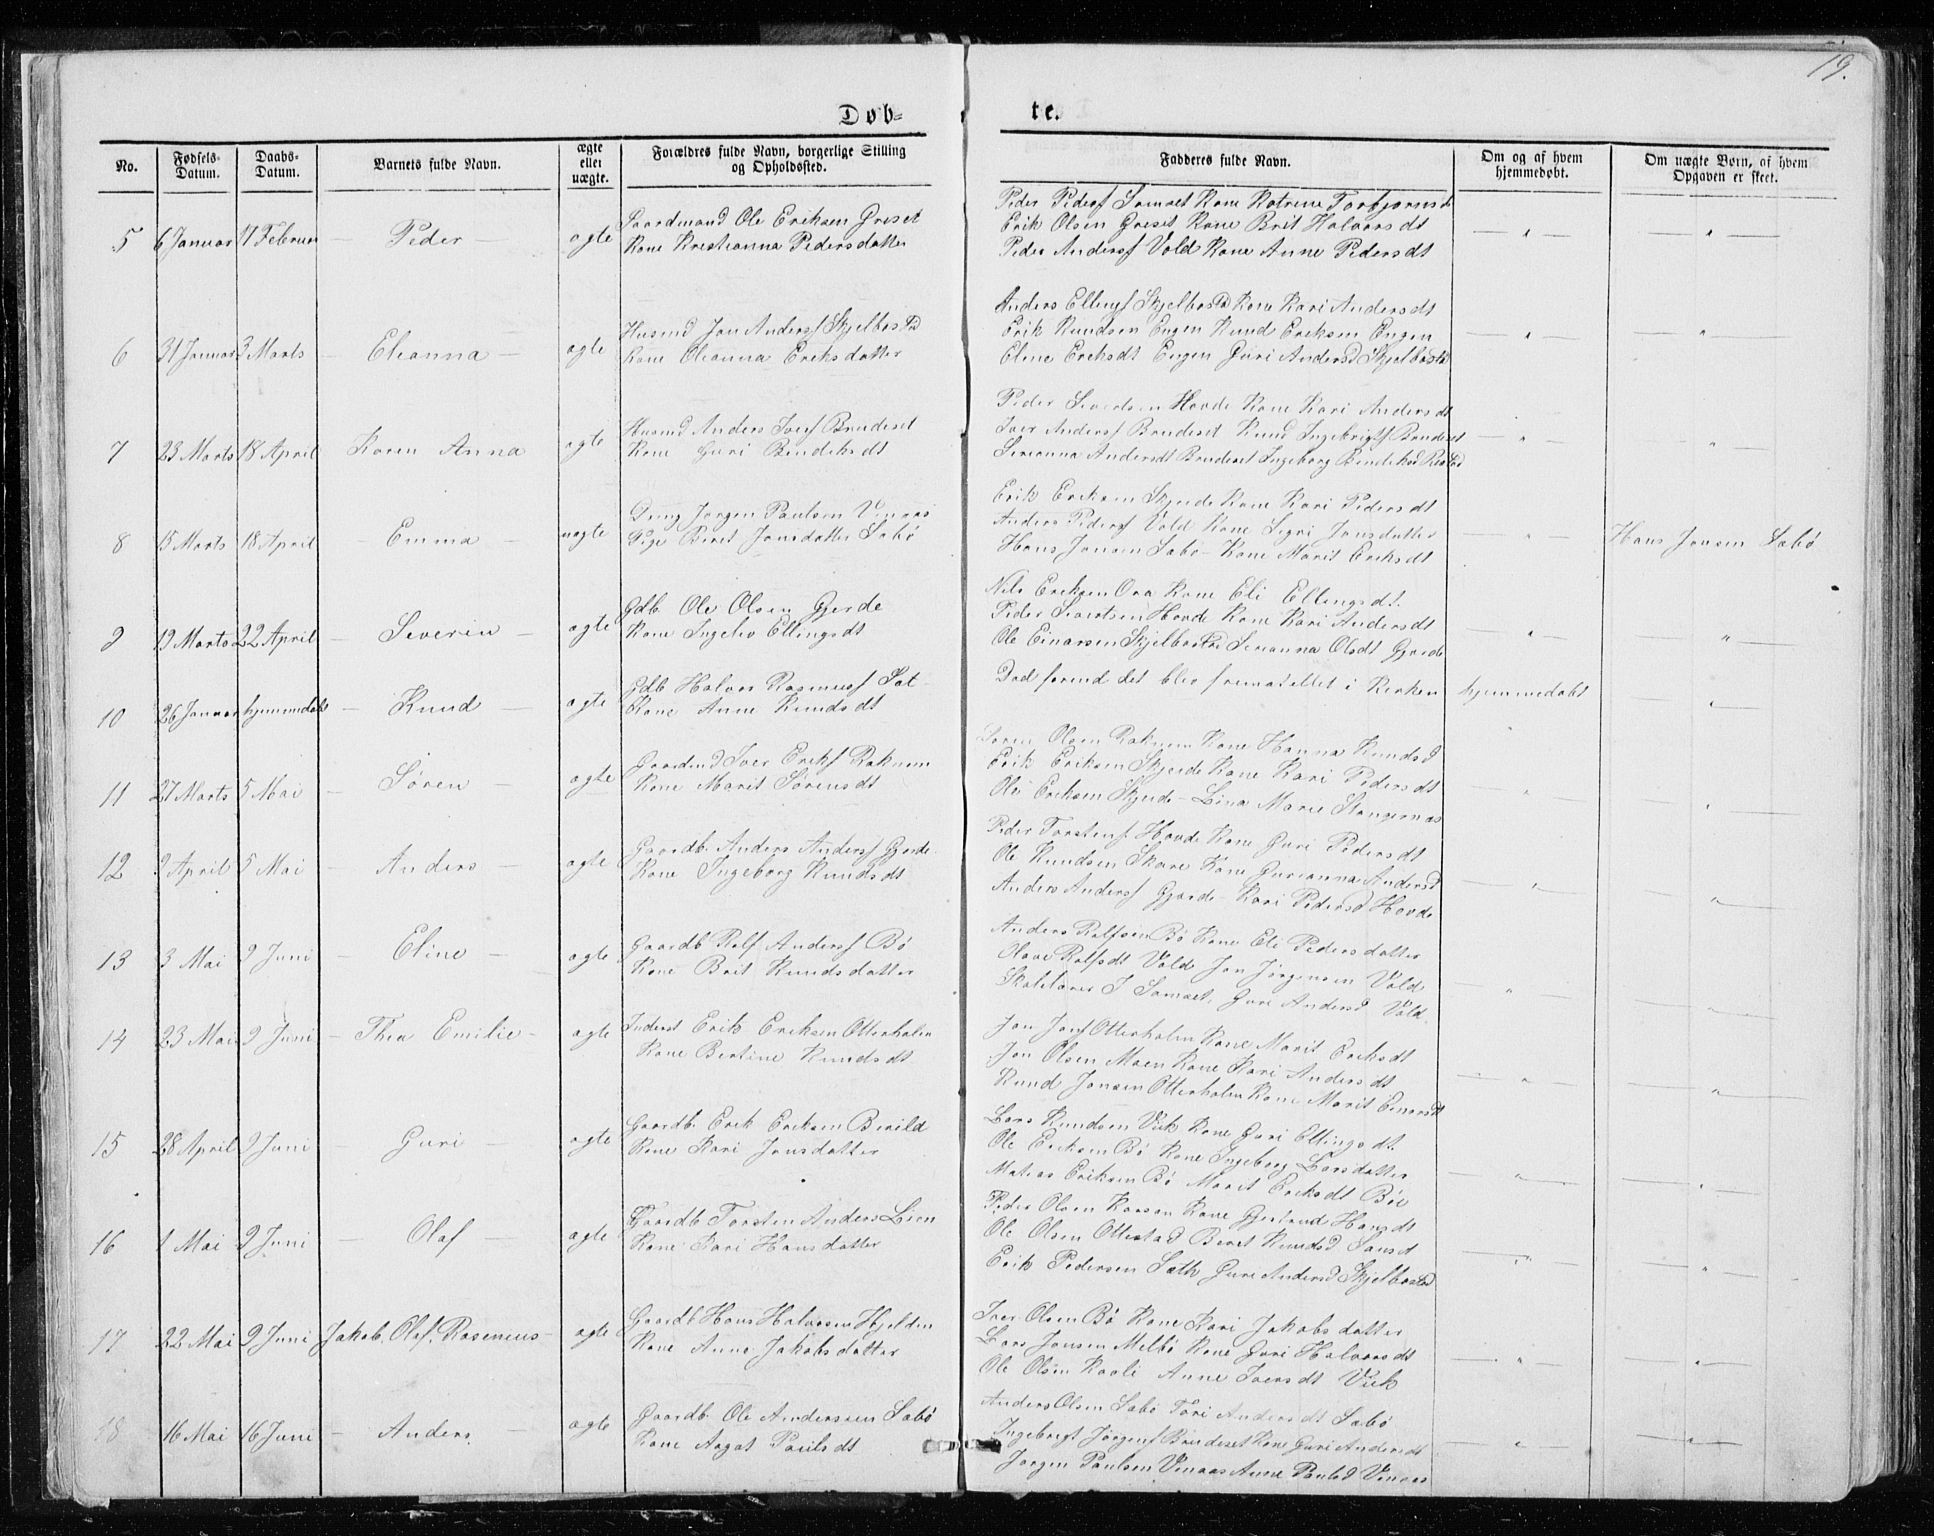 19.
Døb-
te.
No.
Fødsels-Datum.
Daabs-Datum.
Barnets fulde Navn.
ægte eller uægte.
Forældres fulde Navn, borgerlige Stilling og Opholdssted.
Fadderes fulde Navn.
Om og af hvem hjemmedøbt.
Om uægte Børn, af hvem Opgaven er skeet.
5 6 Januar 17 Februar – Peder – ægte
Gaardmand Ole Eriksen Griset
Kone Kristianna Pedersdatter
Peder Peders Kone Katrine Torbjørnsd
Erik Olsen Griset Kone Brit Halvorsdt
Peder Anders Vold Kone Anne Pedersdt
6 31 Januar 3 Marts – Eleanna – ægte
Husmd Jon Anders Skjelbostd
Kone Oleanna Eriksdatter
Anders Ellings Skjelbostd Kone Kari Andersdt
Erik Knudsen Engen Knud Eriksen Engen
Eline Eriksdt Engen Guri Andersd Skjelbostd
7 23 Marts 18 April – Karen Anna ægte
Husmd Anders Ivers Bruaset
Kone Guri Bendiksdt
Peder Sivertsen Hovde Kone Kari Andersdt
Iver Anders Bruaset Knud Ingebrigts Bruaset
Serianna Andersdt Bruaset Ingeborg Bendiksd
8 15 Marts 18 April – Emma – uægte
Dreng Jørgen Paulsen Vinaas
Pige Beret Jonsdatter Sæbø
Erik Eriksen Skjerde Kone Kari Pedersdt
Anders Peders Vold Kone Sigri Jonsdatter
Hans Jonsen Sæbø – Kone Marit Eriksdt
Hans Jonsen Sæbø
9 19 Marts 22 April – Severin – ægte
Gdb Ole Olsen Gjerde
Kone Ingebor Ellingsdt
Nils Eriksen Ora Kone Eli Ellingsdt.
Peder Sivertsen Hovde Kone Kari Andersdt
Ole Einarsen Skjelbostd Serianna Olsdt Gjerde
10 26 Januar hjemmedøbt – Knud – ægte
Gdb Halvor Rasmus Sæt
Kone Anne Knudsdt
Død forend det blev fremstillet i Kirken
hjemmedøbt
11 27 Marts 5 Mai – Søren – ægte
Gaardmd Iver Eriks Raknem
Kone Marit Sørensdt
Søren Olsen Raknem Kone Hanna Knudsd
Erik Eriksen Skjerde Kone Kari Pedersdt
Ole Eriksen Skjerde – Lina Marie Stangernes
12 9 April 5 Mai – Anders – ægte
Gaardb Anders Anders Gjerde
Kone Ingeborg Knudsdt
Peder Torstens Hovde Kone Guri Pedersdt
Ole Knudsen Skare Kone Gurianna Andersd
Anders Anders Gjerde – Kari Pedersd Hovde
13 3 Mai 9 Juni – Eline – ægte
Gaardb Rolf Anders Bø
Kone Brit Knudsdatter
Anders Rolfsen Bø Kone Eli Pedersdatter
Olave Rolfsdt Vold Jon Jørgensen Vold
Skolelærer J Samset, Guri Andersd Vold.
14 23 Mai 9 Juni – Thea Emilie – ægte
Inderst Erik Eriksen Otterholm
Kone Bertine Knudsdt
Jon Jons Otterholm Kone Marit Eriksdt
Jon Olsen Moen Kone Kari Andersdt
Knud Jonsen Otterholm Kone Marit Einarsdt
15 28 April 9 Juni – Guri – ægte
Gaardb Erik Eriksen Berild
Kone Kari Jonsdatter
Lars Knudsen Vik Kone Guri Ellingsdt.
Ole Eriksen Bø Kone Ingeborg Larsdatter
Matias Eriksen Bø Marit Eriksdt Bøe
16 1 Mai 9 Juni – Olaf – ægte
Gaardb Torsten Anders Lien
Kone Kari Hansdatter
Peder Olsen Kone Gjertrud Hansdt
Ole Olsen Ottestad Beret Knudsd
Erik Pedersen Sæth Guri Andersd Skjelbostd
17 22 Mai 9 Juni Jakob Olaf Rasmus – ægte
Gaardb Hans Halvorsen Hjelden
Kone Anne Jakobsdatter
Iver Olsen Bø Kone Kari Jakobsdatter
Lars Jonsen Melbø Kone Guri Halvorsdt
Ole Olsen Anne Iversdt Vik
18 16 Mai 16 Juni – Anders – ægte
Gaardb Ole Anderssen Sæbø
Kone Aagot Paulsdt
Anders Olsen Sæbø Tori Andersdt Sæbø
Ingebrigt Jørgens Bruaset Kone Guri Andersdt
Jørgen Paulsen Vinaas Anne Paulsd Vinaas